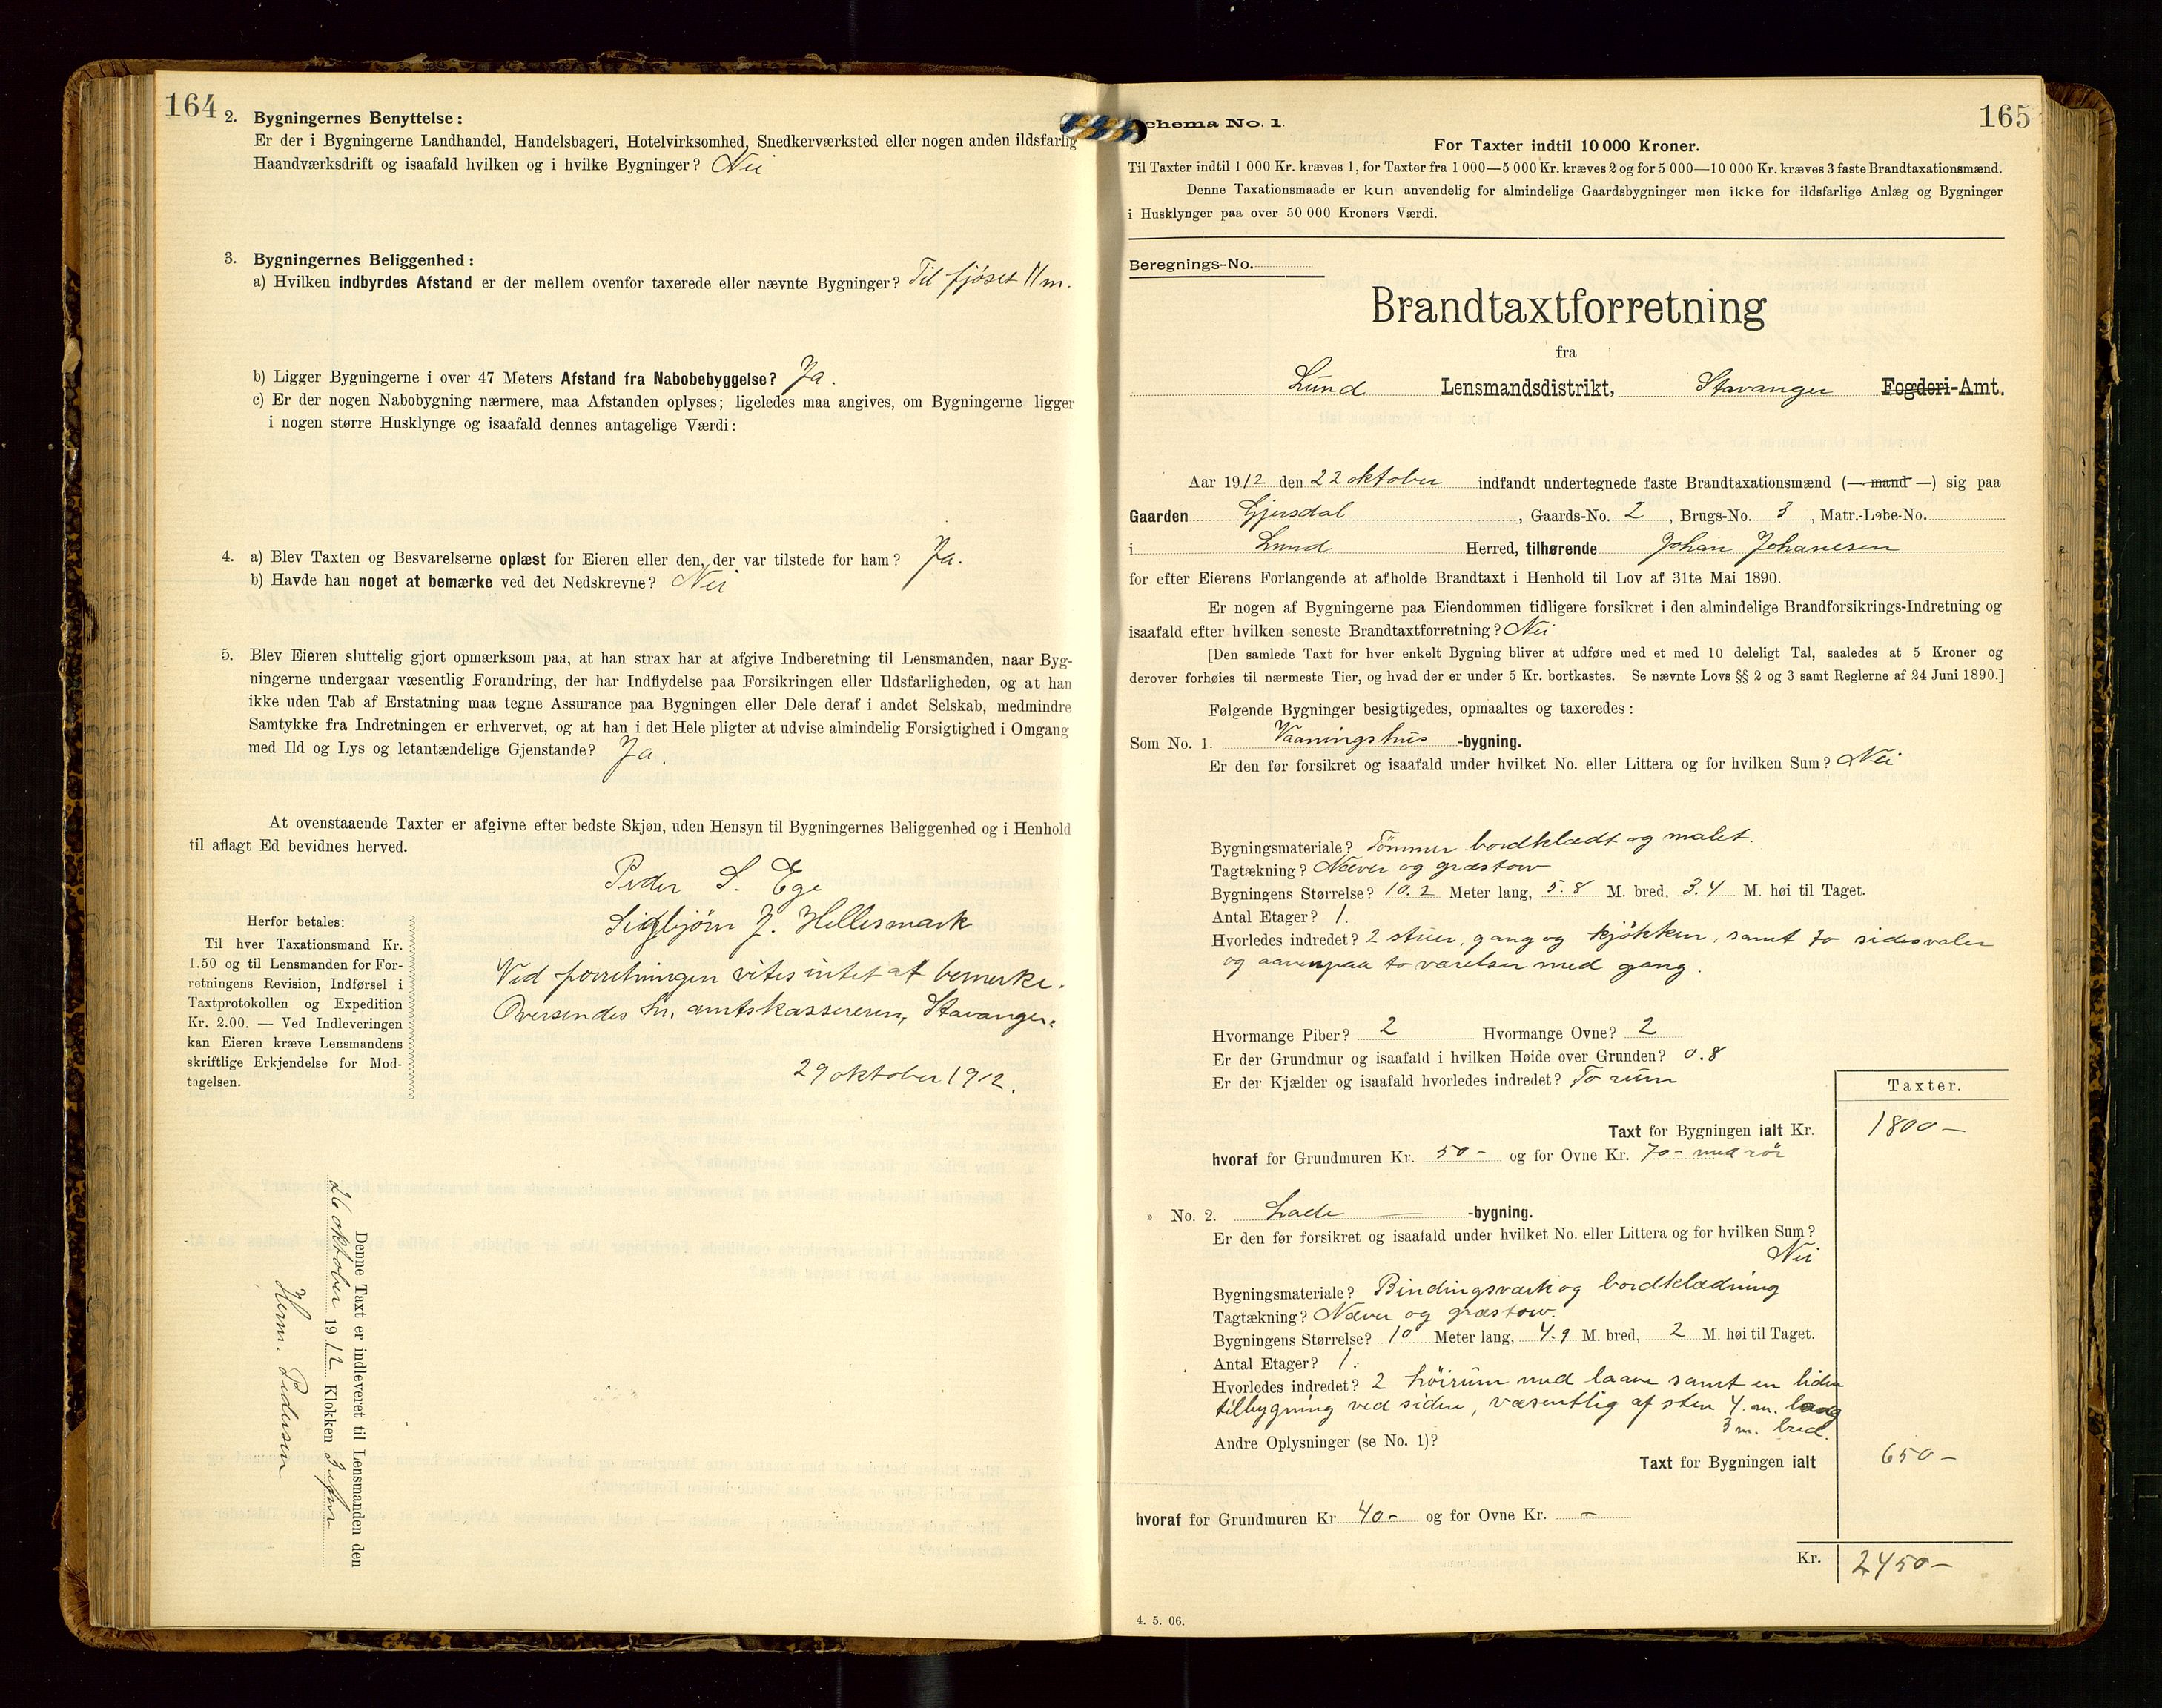 164
2. Bygningernes Benyttelse:
Er der i Bygningerne Landhandel, Handelsbageri, Hotelvirksomhed, Snedkerværksted eller nogen anden ildsfarlig
Haandværksdrift og isaafald hvilken og i hvilke Bygninger? Nei
3. Bygningernes Beliggenhed:
a) Hvilken indbyrdes Afstand er der mellem ovenfor taxerede eller nævnte Bygninger? Til fjöset 11 m.
b) Ligger Bygningerne i over 47 Meters Afstand fra Nabobebyggelse? Ja.
c) Er der nogen Nabobygning nærmere, maa Afstanden oplyses; ligeledes maa angives, om Bygningerne ligger
i nogen større Husklynge og isaafald dennes antagelige Værdi:
4. a) Blev Taxten og Besvarelserne oplæst for Eieren eller den, der var tilstede for ham? Ja.
b) Havde han noget at bemærke ved det Nedskrevne? Nei
5. Blev Eieren sluttelig gjort opmærksom paa, at han strax har at afgive Indberetning til Lensmanden, naar Byg-
ningerne undergaar væsentlig Forandring, der har Indflydelse paa Forsikringen eller Ildsfarligheden, og at han
ikke uden Tab af Erstatning maa tegne Assurance paa Bygningen eller Dele deraf i andet Selskab, medmindre
Samtykke fra Indretningen er erhvervet, og at han i det Hele pligter at udvise almindelig Forsigtighed i Omgang
med Ild og Lys og letantændelige Gjenstande? Ja.
At ovenstaaende Taxter er afgivne efter bedste Skjøn, uden Hensyn til Bygningernes Beliggenhed og i Henhold
til aflagt Ed bevidnes herved.
Peder S. Ege
Sigbjörn J. Hellesmark
Ved forretningen vites intet at bemerke.
Oversendes hr. amtskassereren, Stavanger.
29 oktober 1912.
Herfor betales:
Til hver Taxationsmand Kr.
1.50 og til Lensmanden for For-
retningens Revision, Indførsel i
Taxtprotokollen og Expedition
Kr. 2.00. — Ved Indleveringen
kan Eieren kræve Lensmandens
skriftlige Erkjendelse for Mod-
tagelsen.
Denne Taxt er indleveret til Lensmanden den
26 oktober 1912 Klokken 3 efm
Herm. Pedersen
165
Schema No. 1.
For Taxter indtil 10 000 Kroner.
Til Taxter indtil 1 000 Kr. kræves 1, for Taxter fra 1 000—5 000 Kr. kræves 2 og for 5 000—10 000 Kr. kræves 3 faste Brandtaxationsmænd.
Denne Taxationsmaade er kun anvendelig for almindelige Gaardsbygninger men ikke for ildsfarlige Anlæg og Bygninger
i Husklynger paa over 50 000 Kroners Værdi.
Beregnings-No.
Brandtaxtforretning
fra
Lund Lensmandsdistrikt, Stavanger Fogderi-Amt.
Aar 1912 den 22 oktober indfandt undertegnede faste Brandtaxationsmænd (— mand —) sig paa
Gaarden Gjersdal, Gaards-No. 2, Brugs-No. 3, Matr.-Løbe-No.
i Lund Herred, tilhørende Johan Johanesen
for efter Eierens Forlangende at afholde Brandtaxt i Henhold til Lov af 31te Mai 1890.
Er nogen af Bygningerne paa Eiendommen tidligere forsikret i den almindelige Brandforsikrings-Indretning og
isaafald efter hvilken seneste Brandtaxtforretning? Nei
[Den samlede Taxt for hver enkelt Bygning bliver at udføre med et med 10 deleligt Tal, saaledes at 5 Kroner og
derover forhøies til nærmeste Tier, og hvad der er under 5 Kr. bortkastes. Se nævnte Lovs §§ 2 og 3 samt Reglerne af 24 Juni 1890.]
Følgende Bygninger besigtigedes, opmaaltes og taxeredes:
Som No. 1. Vaaningshus -bygning.
Er den før forsikret og isaafald under hvilket No. eller Littera og for hvilken Sum? Nei
Bygningsmateriale? Tömmer bordklædt og malet.
Tagtækning? Næver og græstorv
Bygningens Størrelse? 10.2 Meter lang, 5.8 M. bred, 3.4 M. høi til Taget.
Antal Etager? 1.
Hvorledes indredet? 2 stuer, gang og kjökken, samt to sidesvaler
og aavenpaa to værelser med gang.
Hvormange Piber? 2 Hvormange Ovne? 2
Er der Grundmur og isaafald i hvilken Høide over Grunden? 0.8
Er der Kjælder og isaafald hvorledes indredet? To rum
Taxter.
Taxt for Bygningen ialt Kr. 1800 —
hvoraf for Grundmuren Kr. 50 - og for Ovne Kr. 70 - med rör
» No. 2. Lade — -bygning.
Er den før forsikret og isaafald under hvilket No. eller Littera og for hvilken Sum?
Nei
Bygningsmateriale? Bindingsværk og bordklædning
Tagtækning? Næver og græstorv.
Bygningens Størrelse? 10 Meter lang, 4.9 M. bred, 2 M. høi til Taget.
Antal Etager? 1.
Hvorledes indredet? 2 höirum med laave samt en liden
tilbygning ved siden, væsentlig af sten 4. m. lang
3 m. bred.
Andre Oplysninger (se No. 1)?
Taxt for Bygningen ialt 650 —
hvoraf for Grundmuren Kr. 40 - og for Ovne Kr. —
Kr. 2450 —
4. 5. 06.